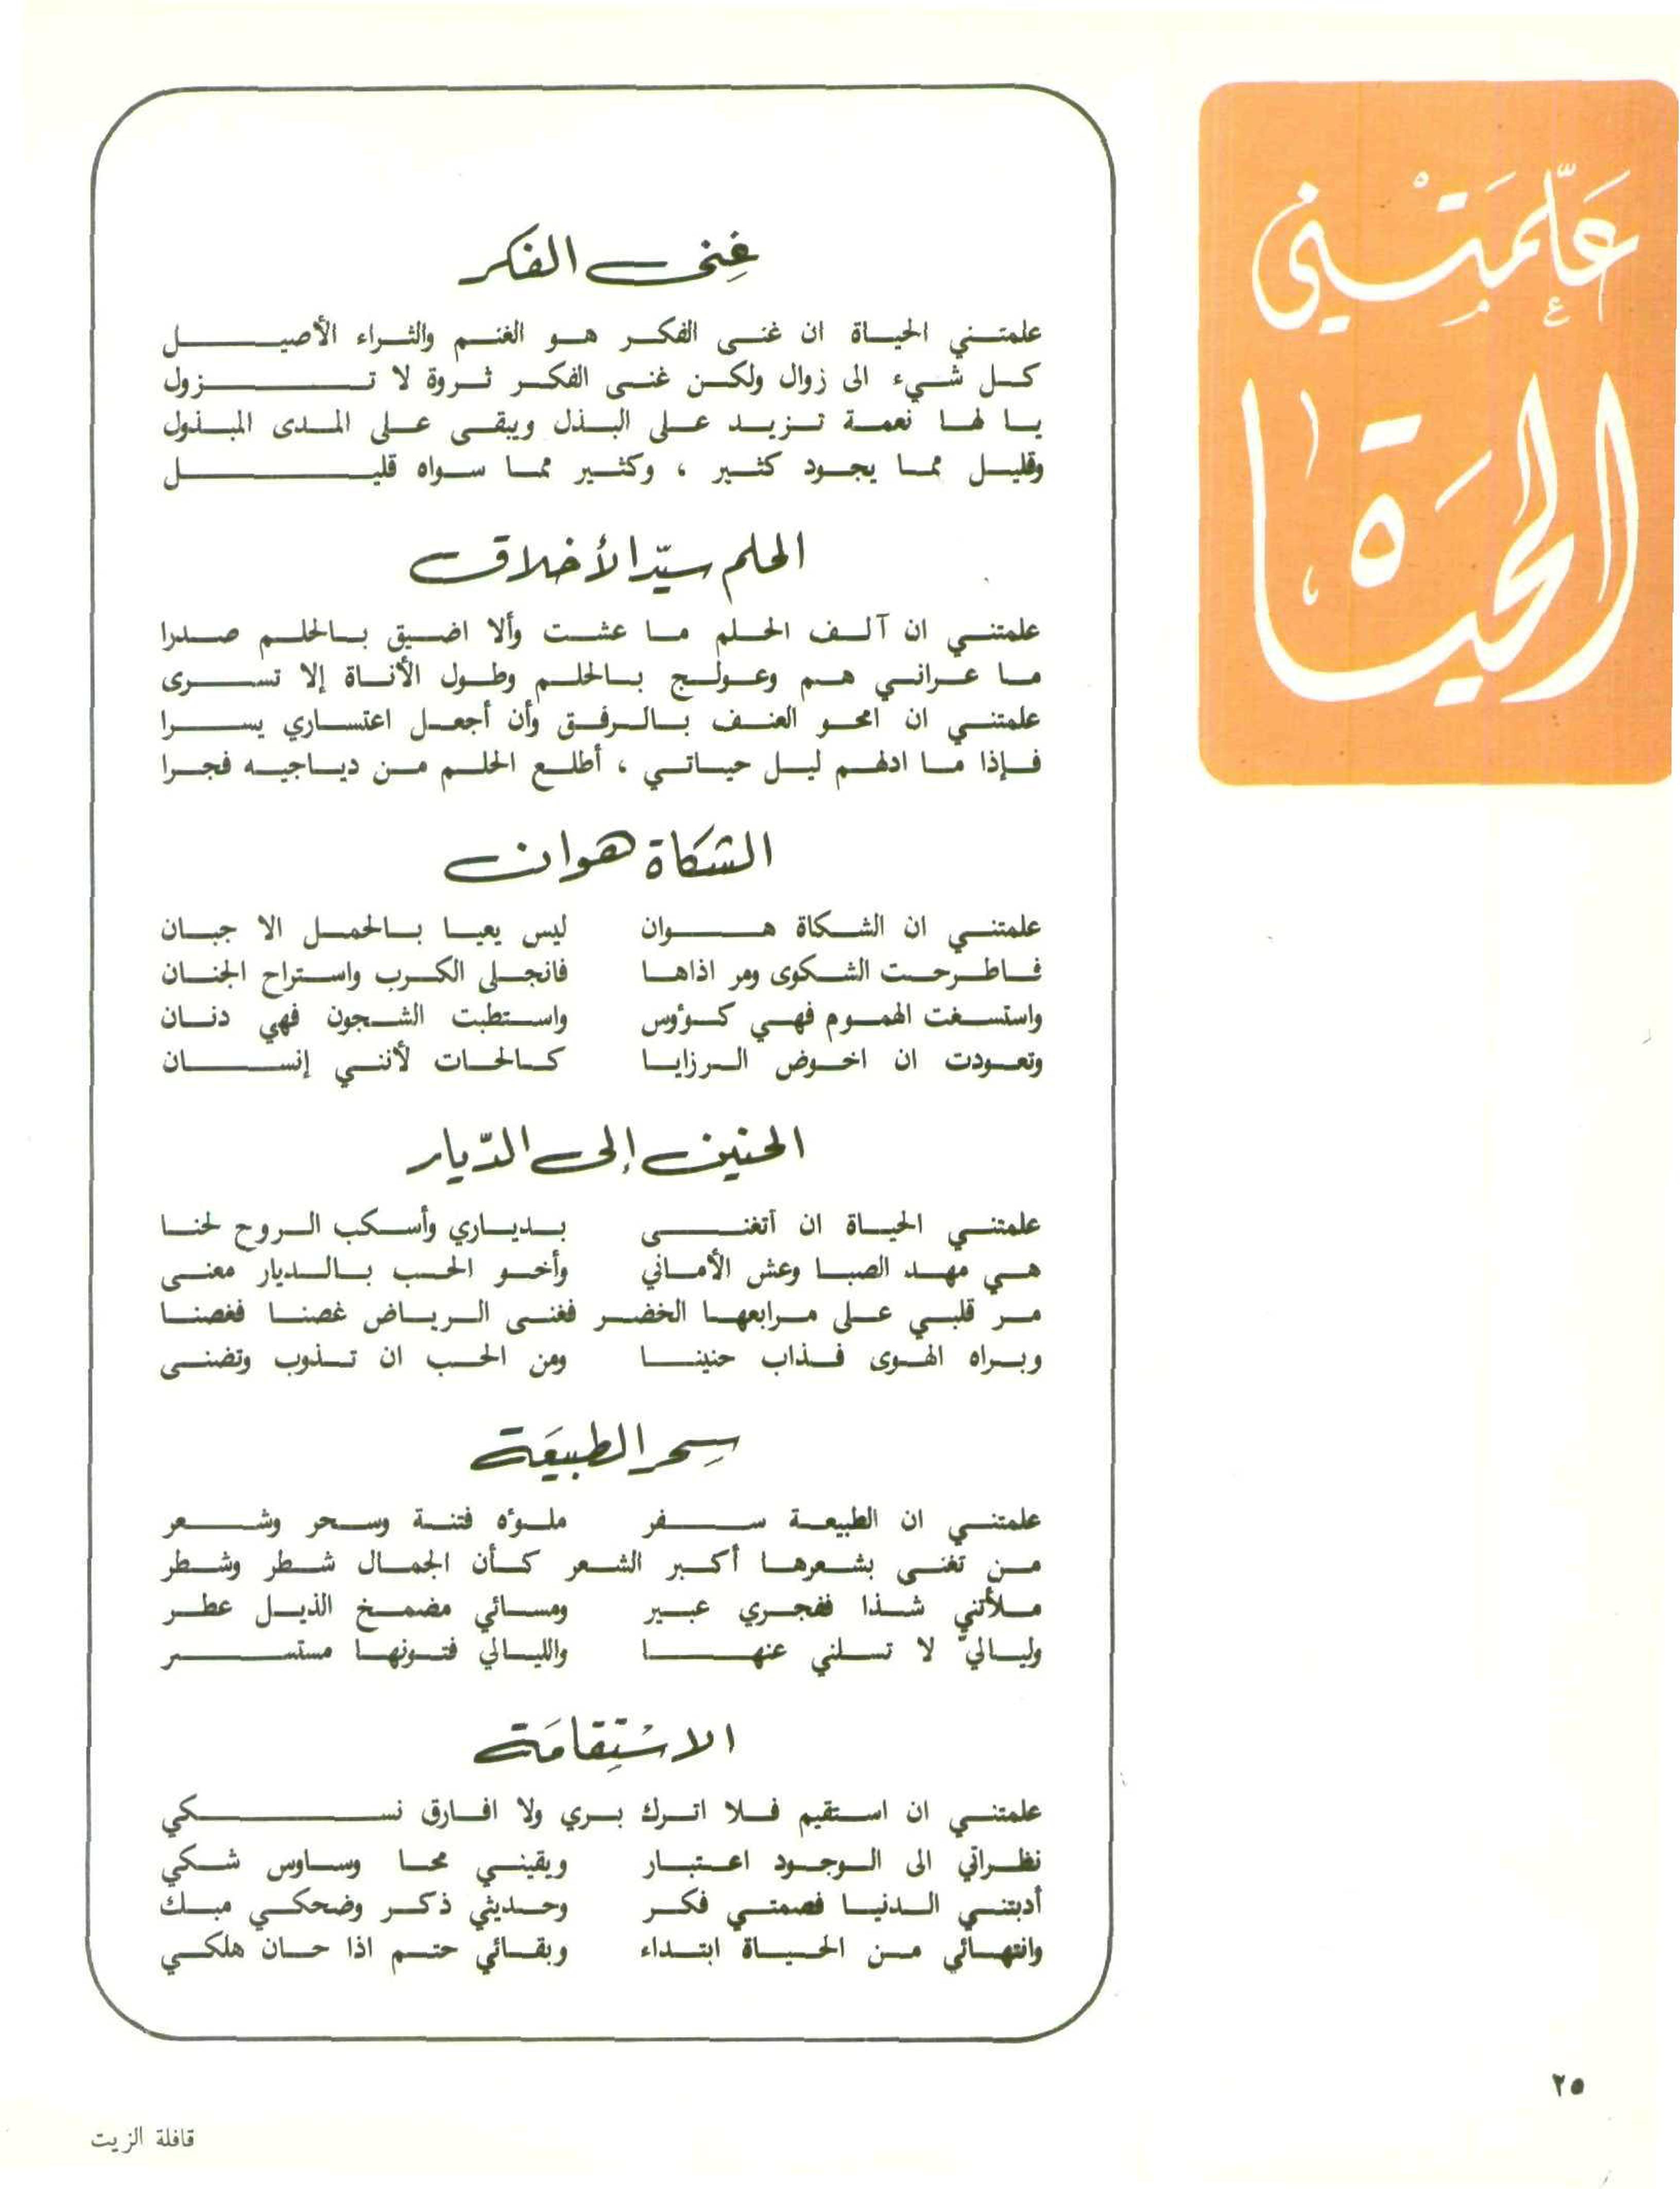 علّمَتْني
الحيَاة
غِنى الفكر
علمتني الحياة ان غنى الفكر هو الغنم والثراء الأصيل
كل شيء الى زوال ولكن غنى الفكر ثروة لا تزول
يا لها نعمة تزيد على البذل ويبقى على المدى المبذول
وقليل مما يجود كثير ، وكثير مما سواه قليل
الحلم سيّد الأخلاق
علمتني ان آلف الحلم ما عشت وألا اضيق بالحلم صدرا
ما عراني هم وعولج بالحلم وطول الأناة إلا تسرى
علمتني ان امحو العنف بالرفق وأن أجعل اعتساري يسرا
فإذا ما ادلهم ليل حياتي ، أطلع الحلم من دياجيه فجرا
الشكاة هوان
علمتني ان الشكاة هوان ليس يعيا بالحمل الا جبان
فاطرحت الشكوى ومر اذاها فانجلى الكرب واستراح الجنان
واستسغت الهموم فهي كؤوس واستطبت الشجون فهي دنان
وتعودت ان اخوض الرزايا كالحات لأنني إنسان
الحنين إلى الدّيار
علمتني الحياة ان أتغنى بدياري وأسكب الروح لحنا
هي مهد الصبا وعش الأماني وأخو الحب بالديار معنى
مر قلبي على مرابعها الخضر فغنى الرياض غصنا فغصنا
وبراه الهوى فذاب حنينا ومن الحب ان تذوب وتضنى
سِحر الطبيعَة
علمتني ان الطبيعة سفر ملؤه فتنة وسحر وشعر
من تغنى بشعرها أكبر الشعر كأن الجمال شطر وشطر
ملأتني شذا ففجري عبير ومسائي مضمخ الذيل عطر
وليالي لا تسلني عنها والليالي فتونها مستسر
الاسْتِقامَة
علمتني ان استقيم فلا اترك بري ولا افارق نسكي
نظراتي الى الوجود اعتبار ويقيني محا وساوس شكي
أدبتني الدنيا فصمتي فكر وحديثي ذكر وضحكي مبك
وانتهائي من الحياة ابتداء وبقائي حتم اذا حان هلكي
٢٥
قافلة الزيت